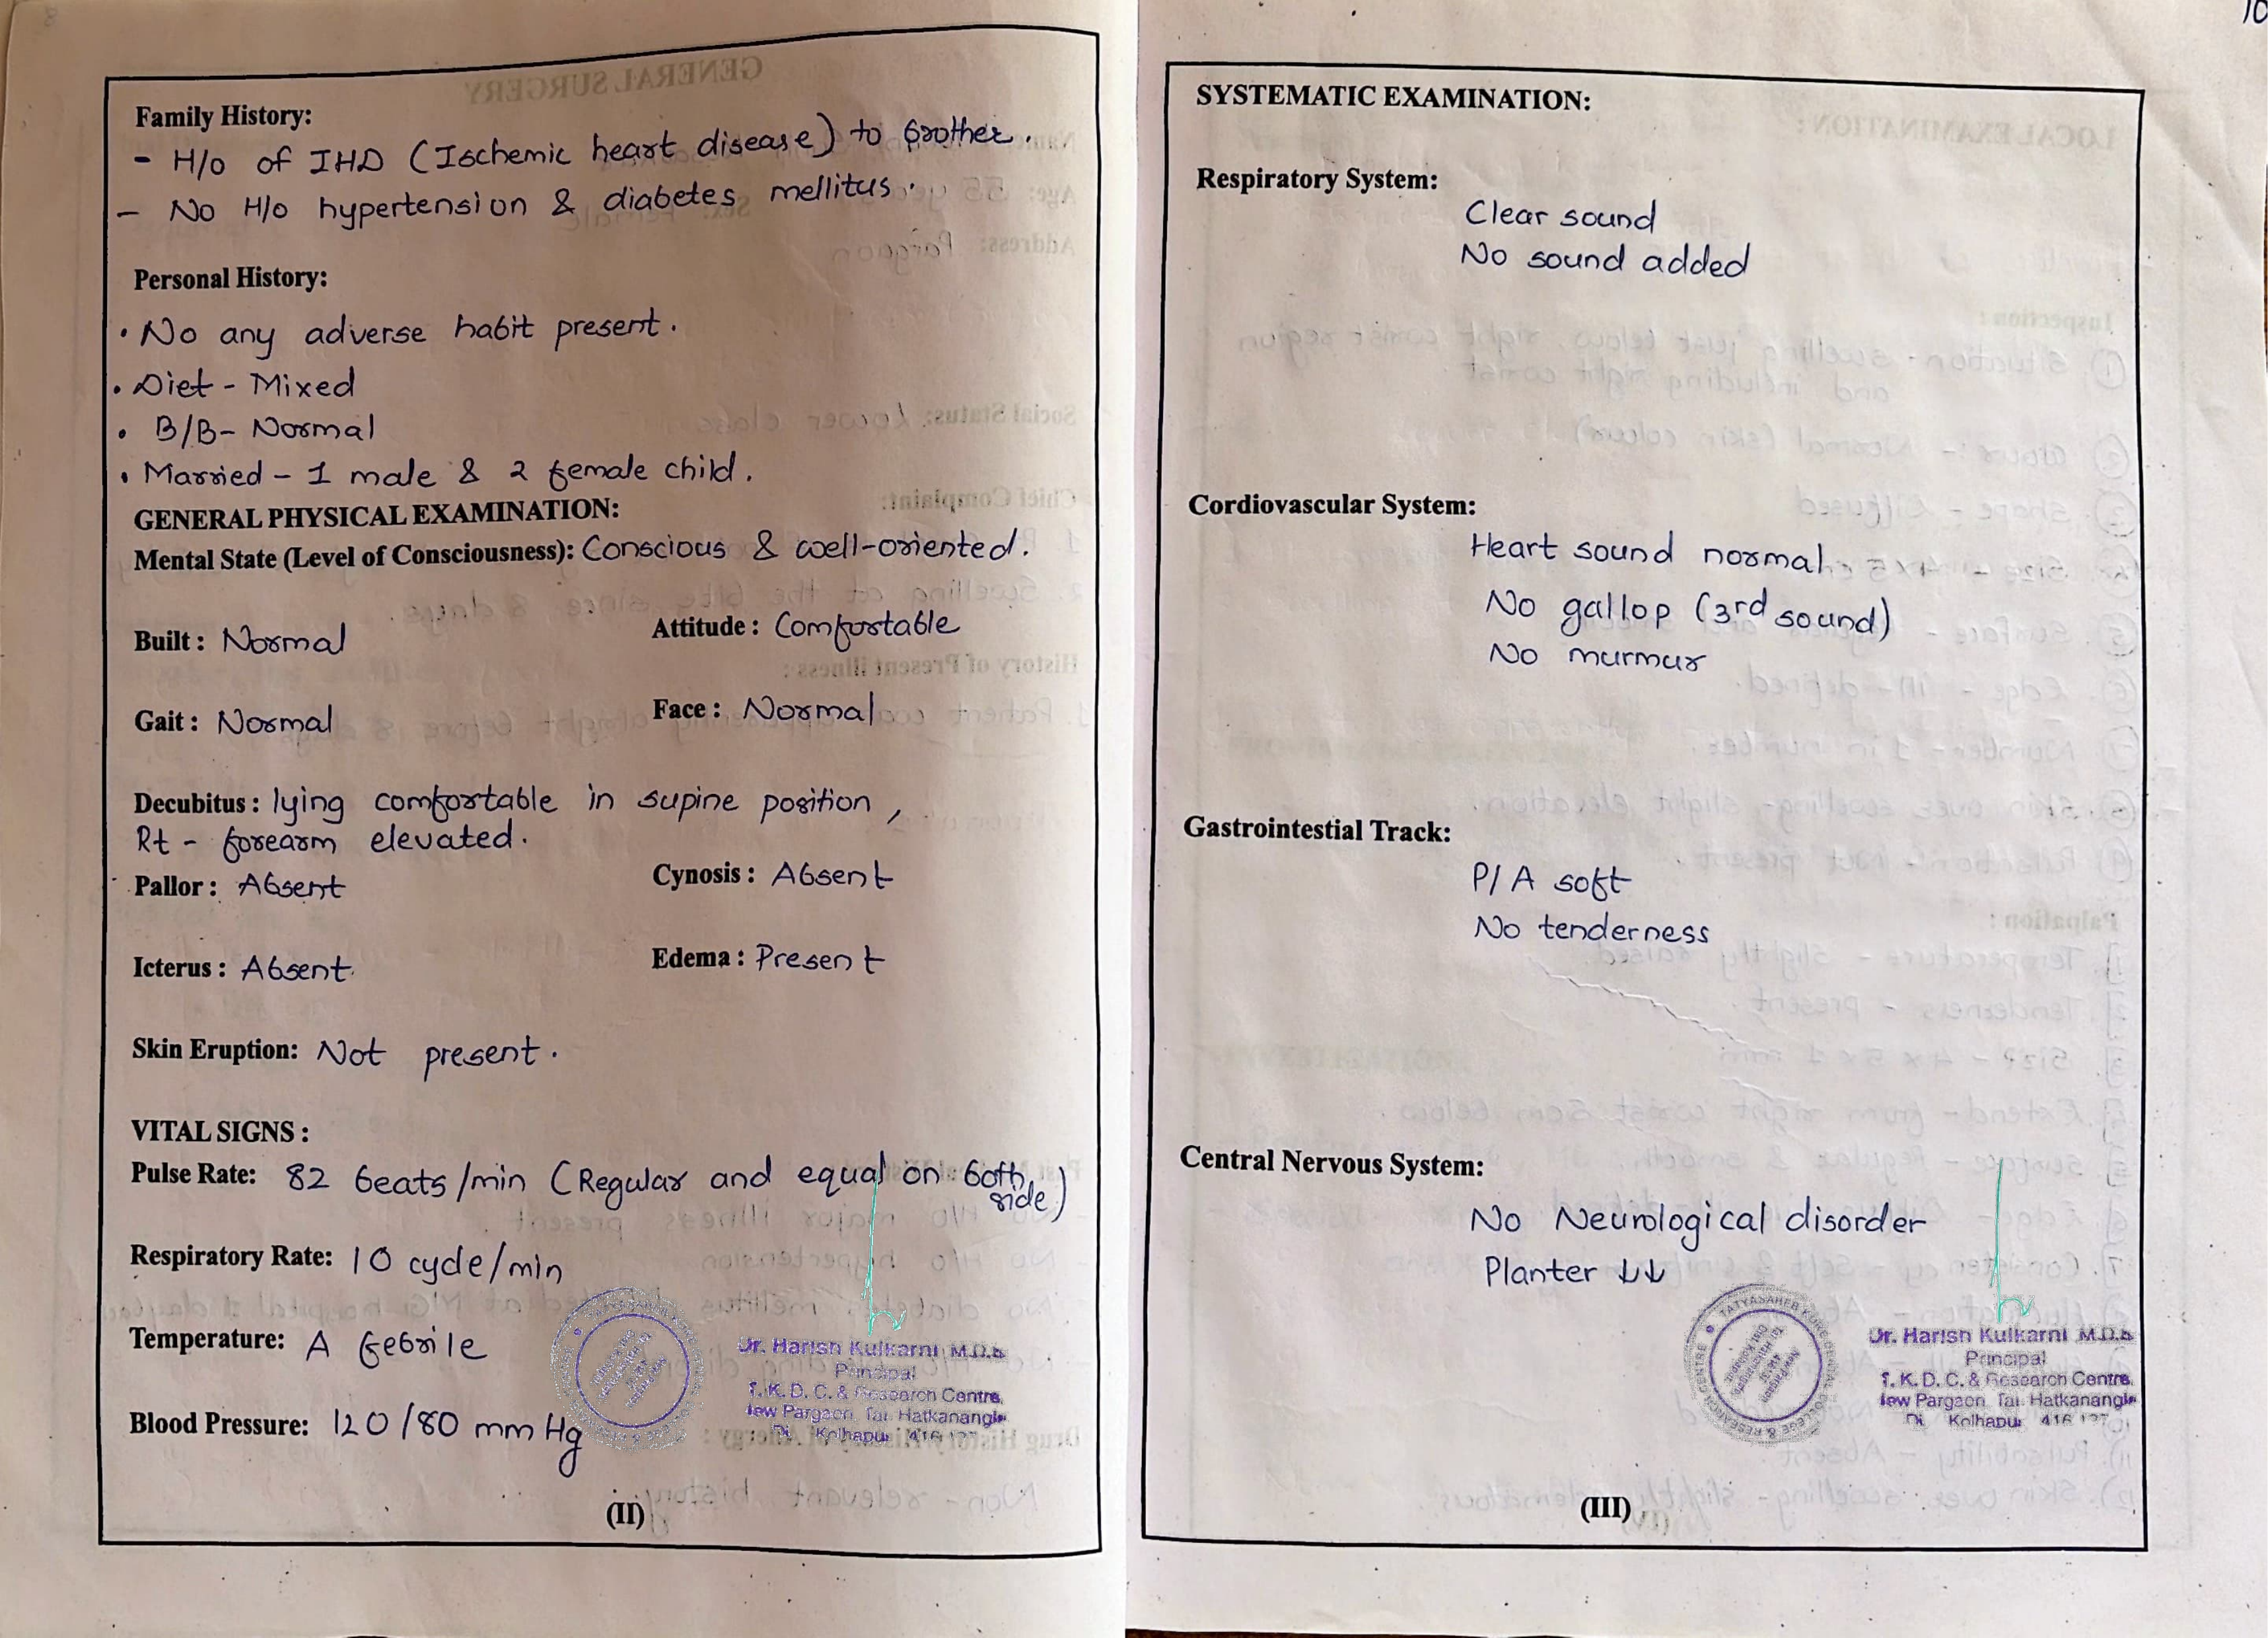 Family History:
- H/o of IHD (Ischemic heart disease) to brother.
- No H/o hypertension & diabetes mellitus.
Personal History:
• No any adverse habit present.
• Diet - Mixed
• B/B - Normal
• Married - 1 male & 2 female child.
GENERAL PHYSICAL EXAMINATION:
Mental State (Level of Consciousness): Conscious & well-oriented.
Built : Normal Attitude : Comfortable
Gait : Normal Face : Normal
Decubitus : lying comfortable in supine position,
Rt - forearm elevated.
Pallor : Absent Cynosis : Absent
Icterus : Absent Edema : Present
Skin Eruption: Not present.
VITAL SIGNS :
Pulse Rate: 82 beats/min (Regular and equal on both side)
Respiratory Rate: 10 cycle/min
Temperature: A febrile
Blood Pressure: 120/80 mm Hg
Dr. Harish Kulkarni M.D.S
Principal
T. K. D. C. & Research Centre,
New Pargaon, Tal. Hatkanangle
Di. Kolhapur 416
(II)
10
SYSTEMATIC EXAMINATION:
Respiratory System:
Clear sound
No sound added
Cordiovascular System:
Heart sound normal
No gallop (3rd sound)
No murmur
Gastrointestial Track:
P/A soft
No tenderness
Central Nervous System:
No Neurological disorder
Planter ↓↓
TATYASAHEB KORE DENTAL COLLEGE & RESEARCH CENTRE
Dr. Harish Kulkarni M.D.S
Principal
T. K. D. C. & Research Centre,
New Pargaon, Tal. Hatkanangle
Di. Kolhapur 416 137
(III)